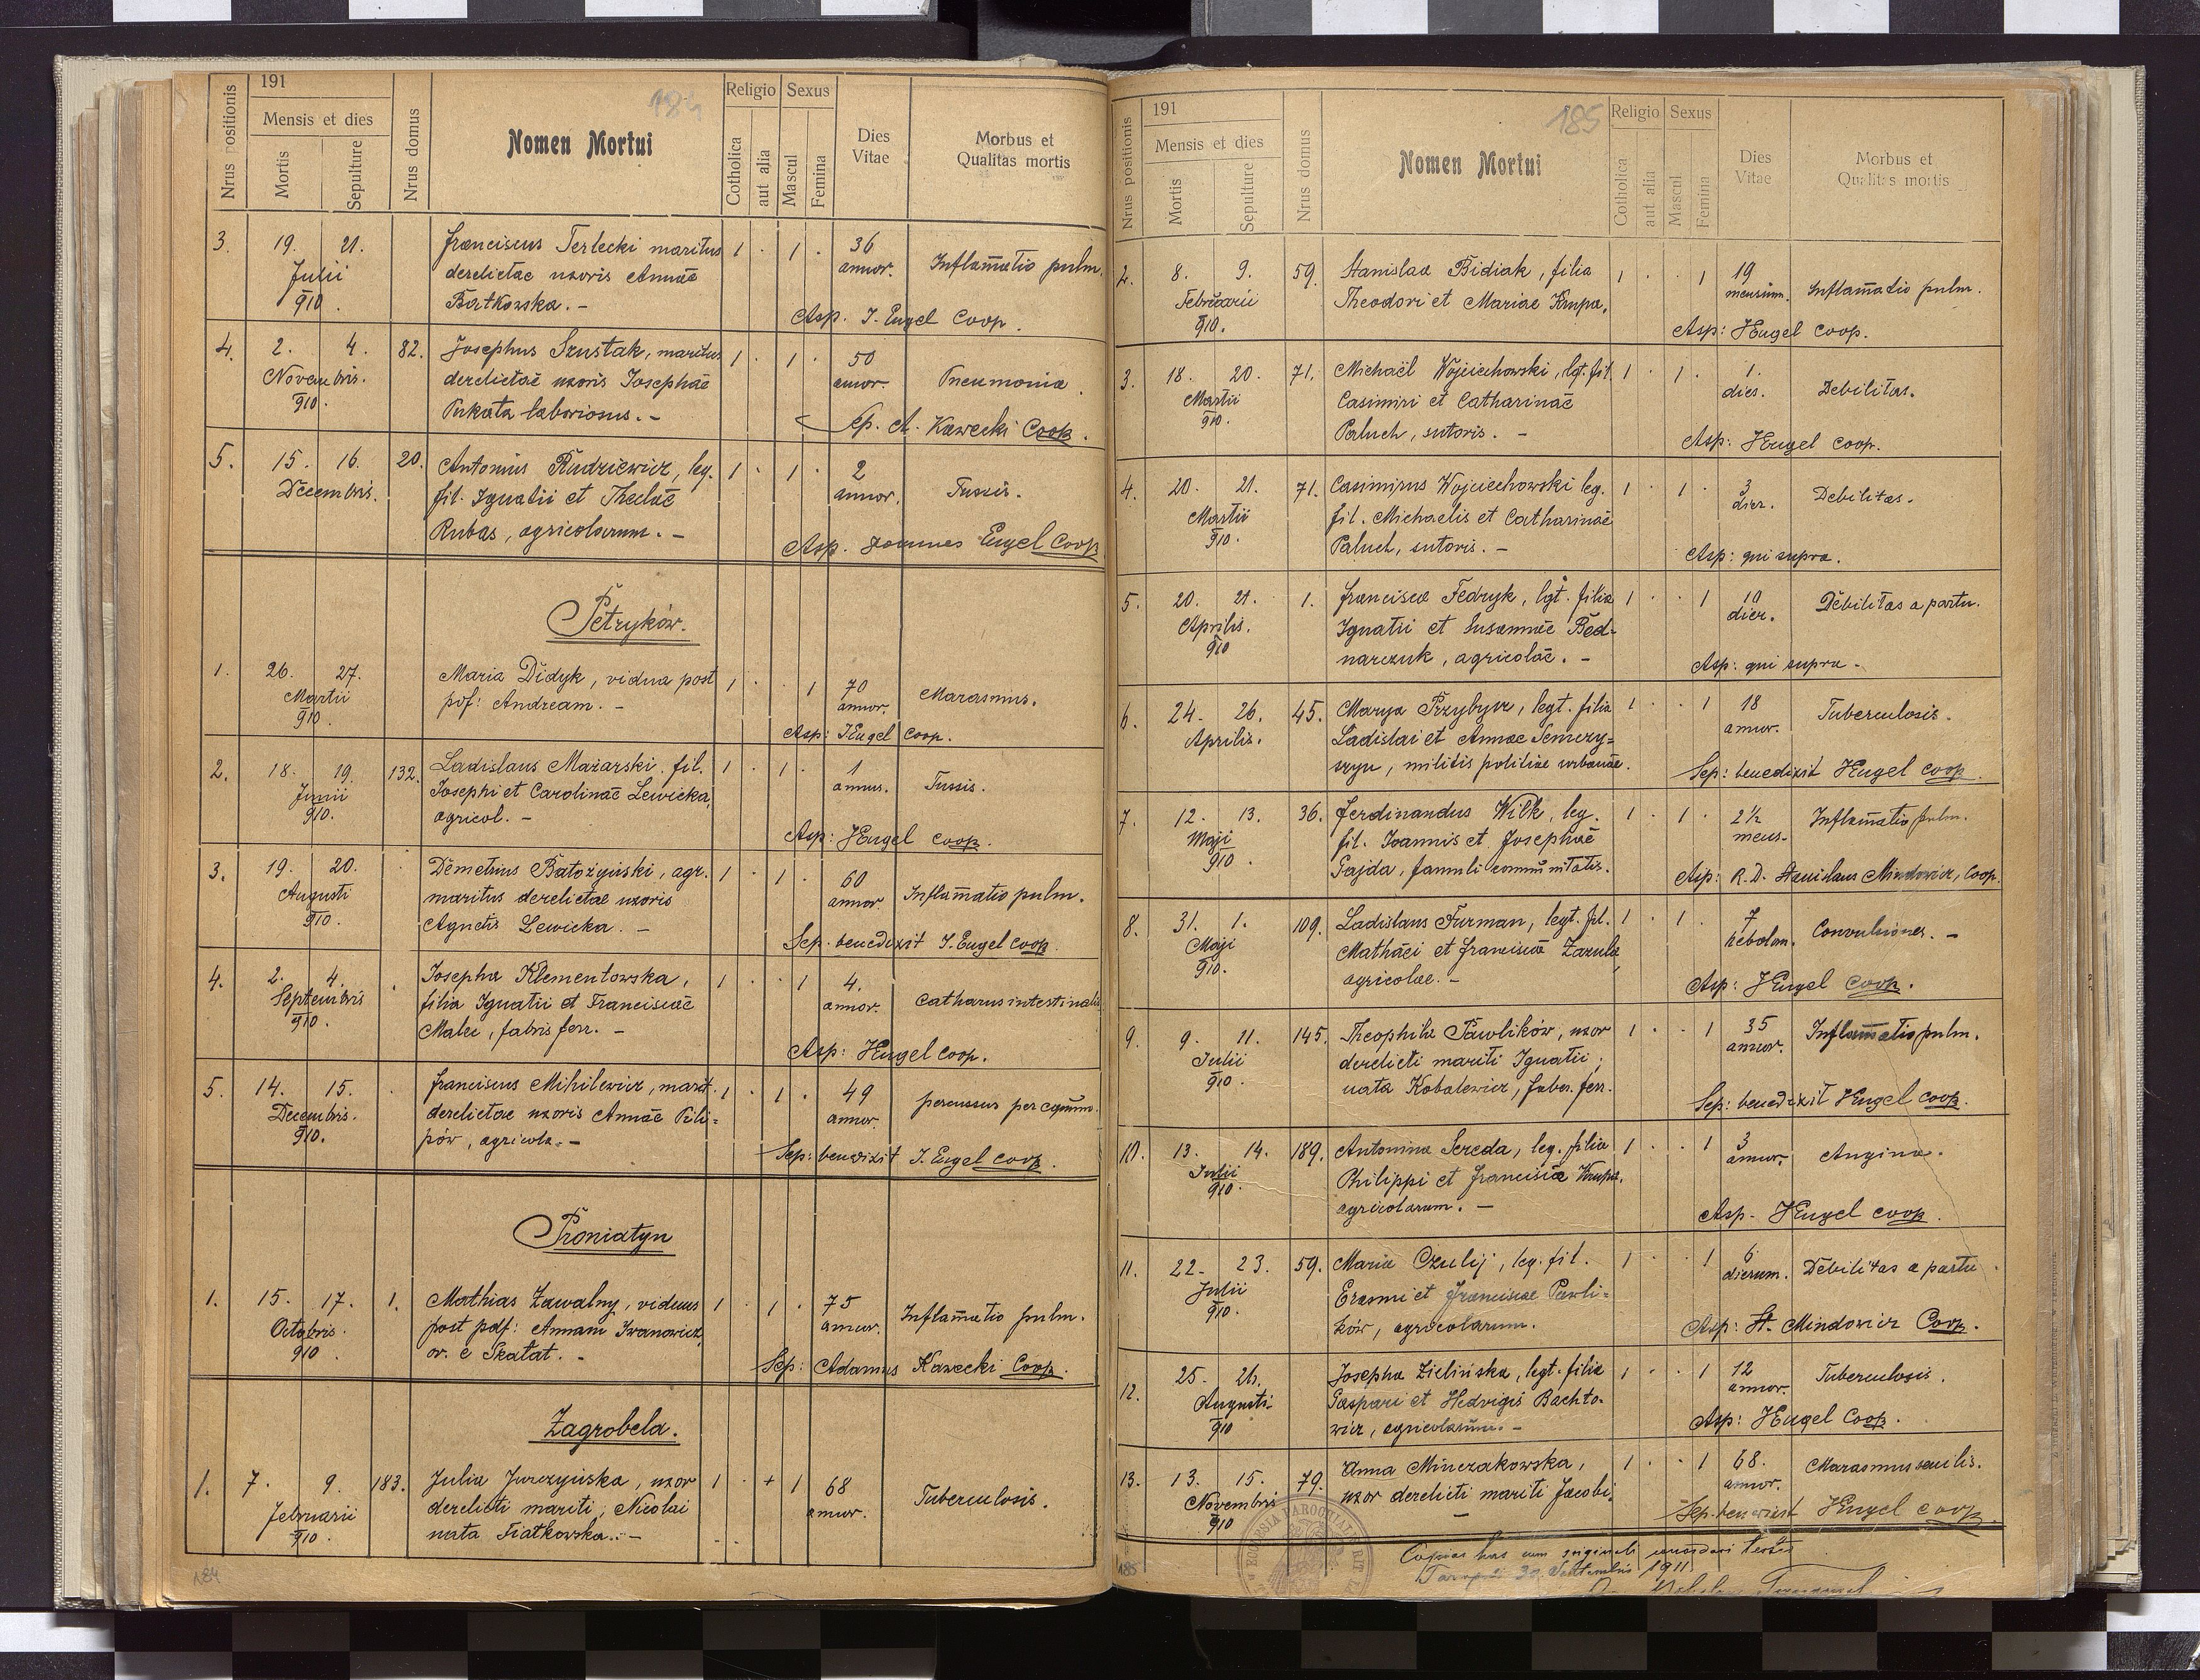 191
Nrus positionis
Mensis et dies
Mortis
Sepulture
Nrus domus
184
Nomen Mortui
Religio
Sexus
Cotholica
aut alia
Mascul
Femina
Dies
Vitae
Morbus et
Qualitas mortis
3. 19. 21. Franciscus Terlecki maritus 1 . 1 . 36
Julii derelictae uxoris Annae annor. Inflam̄atio pulm.
910. Bartkowska. -
Asp. J. Engel Coop.
4. 2. 4. 82. Josephus Szustak, maritus 1 . 1 . 50
Novembris. derelictae uxoris Josephae annor. Pneumonia.
910. laboriosus. -
Sep. A. Kawecki Coop.
5. 15. 16. 20. Antonius Rudziewicz, leg. 1 . 1 . 2
Decembris. fil. Ignatii et Theclae annor. Tussis.
Rubas, agricolarum. -
Asp. Joannes Engel Coop.
Petryków.
1. 26. 27. Maria Didyk, vidua post 1 . . 1 70
Martii pdf: Andream. - annor. Marasmus.
910.
Asp: J Engel coop.
2. 18. 19. 132. Ladislaus Mazarski fil. 1 . 1 . 1
Junii Josephi et Carolinae Lewicka, annus. Tussis.
910. agricol. -
Asp: J Engel coop.
3. 19. 20. . Demetrius Batożyński, agr. 1 . 1 . 60
Augusti maritus derelictae uxoris annor. Inflam̄atio pulm.
910. Agnetis Lewicka. -
Sep. benedixit J. Engel coop.
4. 2. 4. . Josepha Klementowska, 1 . . 1 4.
Septembris filia Ignatii et Franciscae annor. Catharus intestinalis
910. Malec, fabris ferr. -
Asp: J Engel coop.
5. 14. 15. . Franciscus Mihilewicz, marit. 1 . 1 . 49
Decembris. derelictae uxoris Annae Pili- annor. percussus per equum.
910. pów, agricola. -
Sep: benedixit J. Engel coop.
Proniatyn
1. 15. 17. 1. Mathias Zawalny, viduus 1 . 1 . 75
Octobris. post pdf: Annam Iwanowicz, annor. Inflam̄atio pulm.
910 or. e Skałat. -
Sep: Adamus Kawecki Coop.
Zagrobela.
1. 7. 9. 183. Julia Jurczyńska, uxor 1 . + 1 68
Februarii derelicti mariti, Nicolai annor. Tuberculosis.
910. nata Fiatkowska. -
184
191
Nrus positionis
Mensis et dies
Mortis
Sepulture
Nrus domus
185
Nomen Mortui
Religio
Sexus
Cotholica
aut alia
Mascul
Femina
Dies
Vitae
Morbus et
Qualitas mortis
2. 8. 9. 59. Stanislaa Bidiak, filia 1 . . 1 19
Februarii Theodori et Mariae Krupa. mensium. Inflam̄atio pulm.
910.
Asp: J Engel coop.
3. 18. 20. 71. Michaël Wojciechowski, lgt. fil. 1 . 1 . 1.
Martii Casimiri et Catharinae dies. Debilitas.
910. Paluch, sutoris. -
Asp: J Engel coop.
4. 20. 21. 71. Casimirus Wojciechowski leg. 1 . 1 . 3
Martii fil. Michaelis et Catharinae dier. Debilitas.
910. Paluch, sutoris. -
Asp: qui supra.
5. 20. 21. 1. Francisca Fedryk, lgt. filia 1 . . 1 10
Aprilis. Ignatii et Susannae Bed- dier. Debilitas a partu.
910 narczuk, agricolae. -
Asp: qui supra -
6. 24. 26. 45. Marya Przybysz, legt. filia 1 . . 1 18
Aprilis. Ladislai et Annae annor. Tuberculosis.
militis politiae urbanae.
Sep: benedixit J Engel coop.
7. 12. 13. 36. Ferdinandus Wilk, leg. 1 . 1 . 2½
Maji fil. Joannis et Josephae mens. Inflam̄atio pulm.
910. Gajda, famuli communitatis.
Asp: R. D. Stanislaus Mindowicz, Coop.
8. 31. 1. 109. Ladislaus Furman, legt. fil. 1 . 1 . 7
Maji Mathaei et Franciscae Zazula, hebdom. Convulsiones. -
910. agricolae. -
Asp: J Engel coop.
9. 9. 11. 145. Theophila Pawlików, uxor 1 . . 1 35
Julii derelicti mariti Ignatii, annor. Inflammatio pulm.
910. nata Kobalewicz, faber. ferr.
Sep: benedixit J Engel coop.
10. 13. 14. 189. Antonina Sereda, leg. filia 1 . . 1 3
Julii Philippi et Franciscae Krupa, annor. Angina.
910. agricolarum. -
Asp. J Engel coop.
11. 22. 23. 59. Maria Czulij, leg. fil. 1 . . 1 6
Julii Erasmi et Franciscae Pawli- dierum. Debilitas a partu.
910. ków, agricolarum.
Asp: St. Mindowicz Coop.
12. 25. 26. Josepha Zielińska, legt. filia 1 . . 1 12
Augusti Gaspari et Hedvigis Bachto- annor. Tuberculosis.
910 wicz, agricolarum. -
Asp: J Engel Coop.
13. 13. 15. 79. Anna Minczakowska, 1 . . 1 68.
Novembris uxor derelicti mariti Jacobi. annor. Marasmus senilis.
910 -
Sep. benedixit J Engel coop.
Copias has cum originali concordari testor
30 Septembris 1911.
185